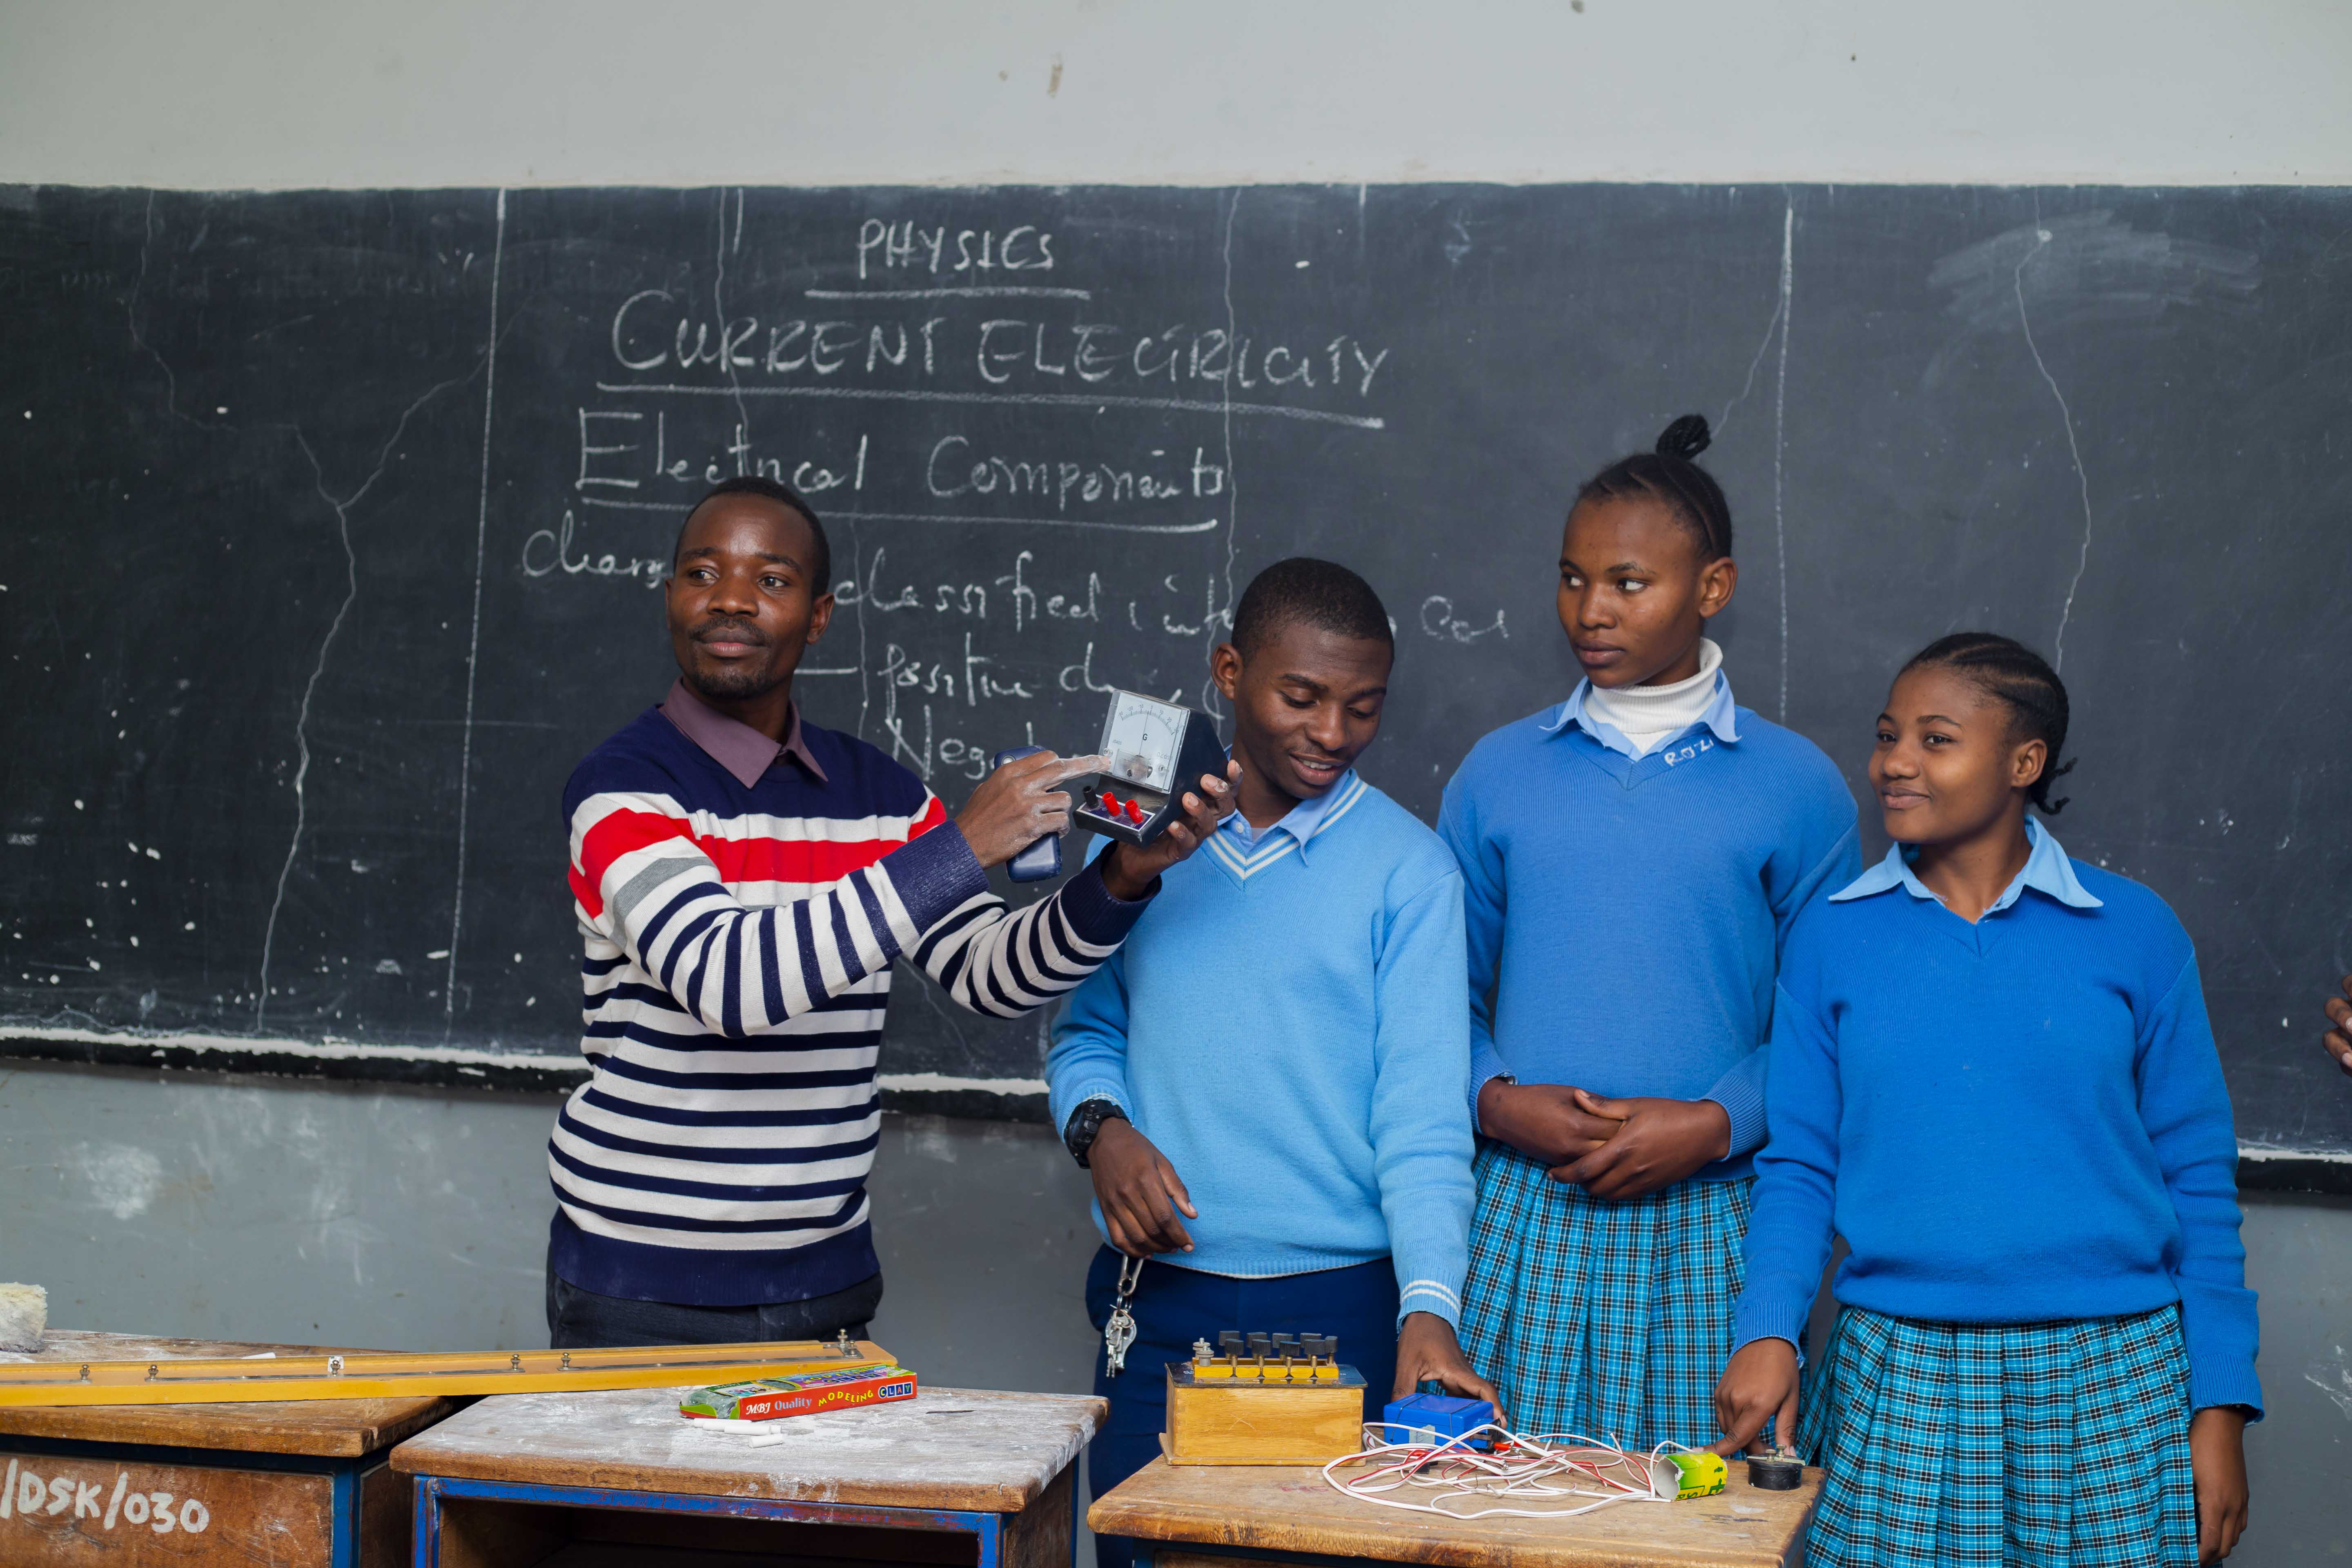 PHYSICS
CURRENT ELECTRICITY
Electrical Components
classified
— positive
G
MBJ Quality MODELING CLAY
/DSK/030